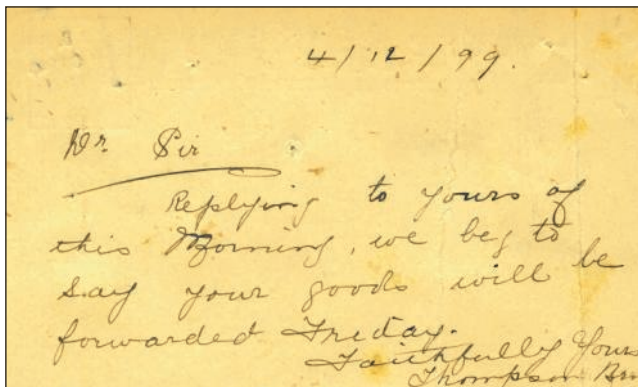 4/12/99.
Dr. Sir
Replying to yours of
this Morning, we beg to
say your goods will be
forwarded Friday.
Faithfully Yours
Thompson